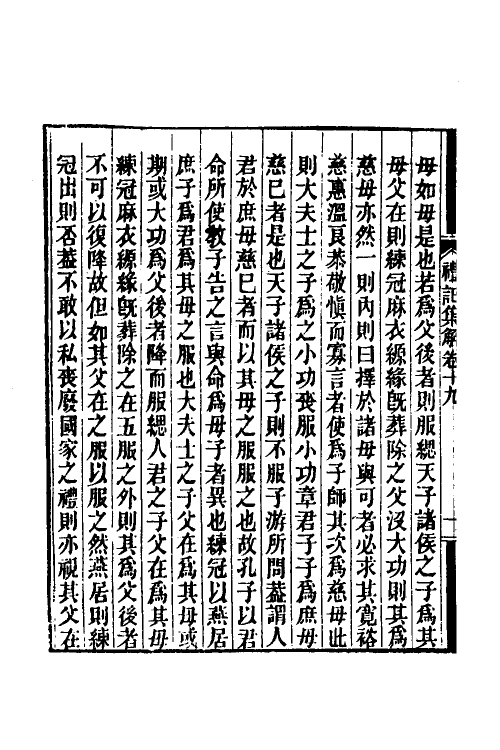 禮記集解卷十九
母如母是也若爲父後者則服緦天子諸侯之子爲其
母父在則練冠麻衣縓緣旣葬除之父沒大功則其爲
慈母亦然一則內則曰擇於諸母與可者必求其寬裕
慈惠溫良恭敬愼而寡言者使爲子師其次爲慈母此
則大夫士之子爲之小功喪服小功章君子子爲庶母
慈已者是也天子諸侯之子則不服子游所問葢謂人
君於庶母慈已者而以其母之服服之也故孔子以君
命所使敎子告之言與命爲母子者異也練冠以燕居
庶子爲君爲其母之服也大夫士之子父在爲其母或
期或大功爲父後者降而服緦人君之子父在爲其母
練冠麻衣縓緣旣葬除之在五服之外則其爲父後者
不可以復降故但如其父在之服以服之然燕居則練
冠出則否葢不敢以私喪廢國家之禮則亦視其父在